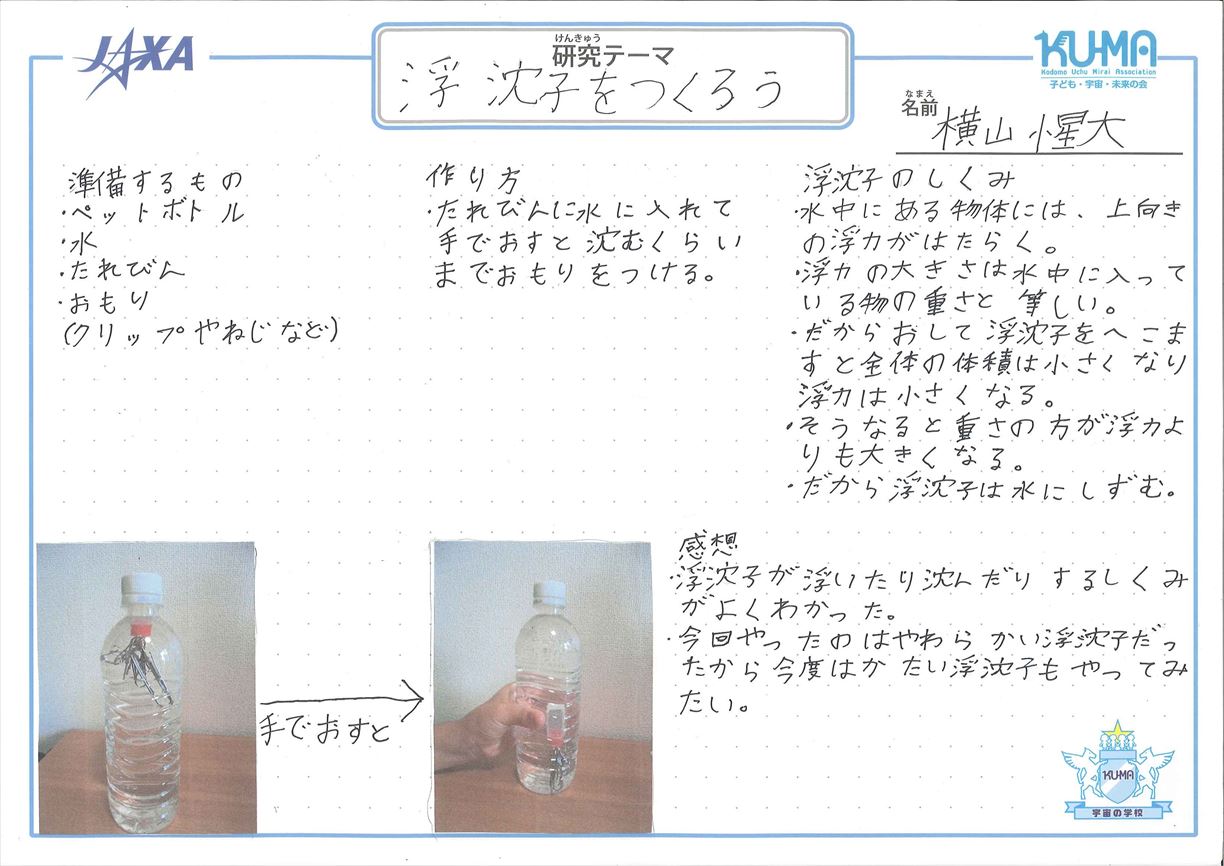 JAXA
けんきゅう
研究テーマ
浮沈子をつくろう
KU-MA
Kodomo Uchu Mirai Association
子ども・宇宙・未来の会
なまえ
名前
横山 惺大
準備するもの
・ペットボトル
・水
・たれびん
・おもり
(クリップやねじなど)
作り方
・たれびんに水に入れて
手でおすと沈むくらい
までおもりをつける。
浮沈子のしくみ
・水中にある物体には、上向き
の浮力がはたらく。
・浮力の大きさは水中に入って
いる物の重さと等しい。
・だからおして浮沈子をへこま
すと全体の体積は小さくなり
浮力は小さくなる。
・そうなると重さの方が浮力よ
りも大きくなる。
・だから浮沈子は水にしずむ。
手でおすと
感想
・浮沈子が浮いたり沈んだりするしくみ
がよくわかった。
・今回やったのはやわらかい浮沈子だっ
たから今度はかたい浮沈子もやってみ
たい。
KU-MA
宇宙の学校